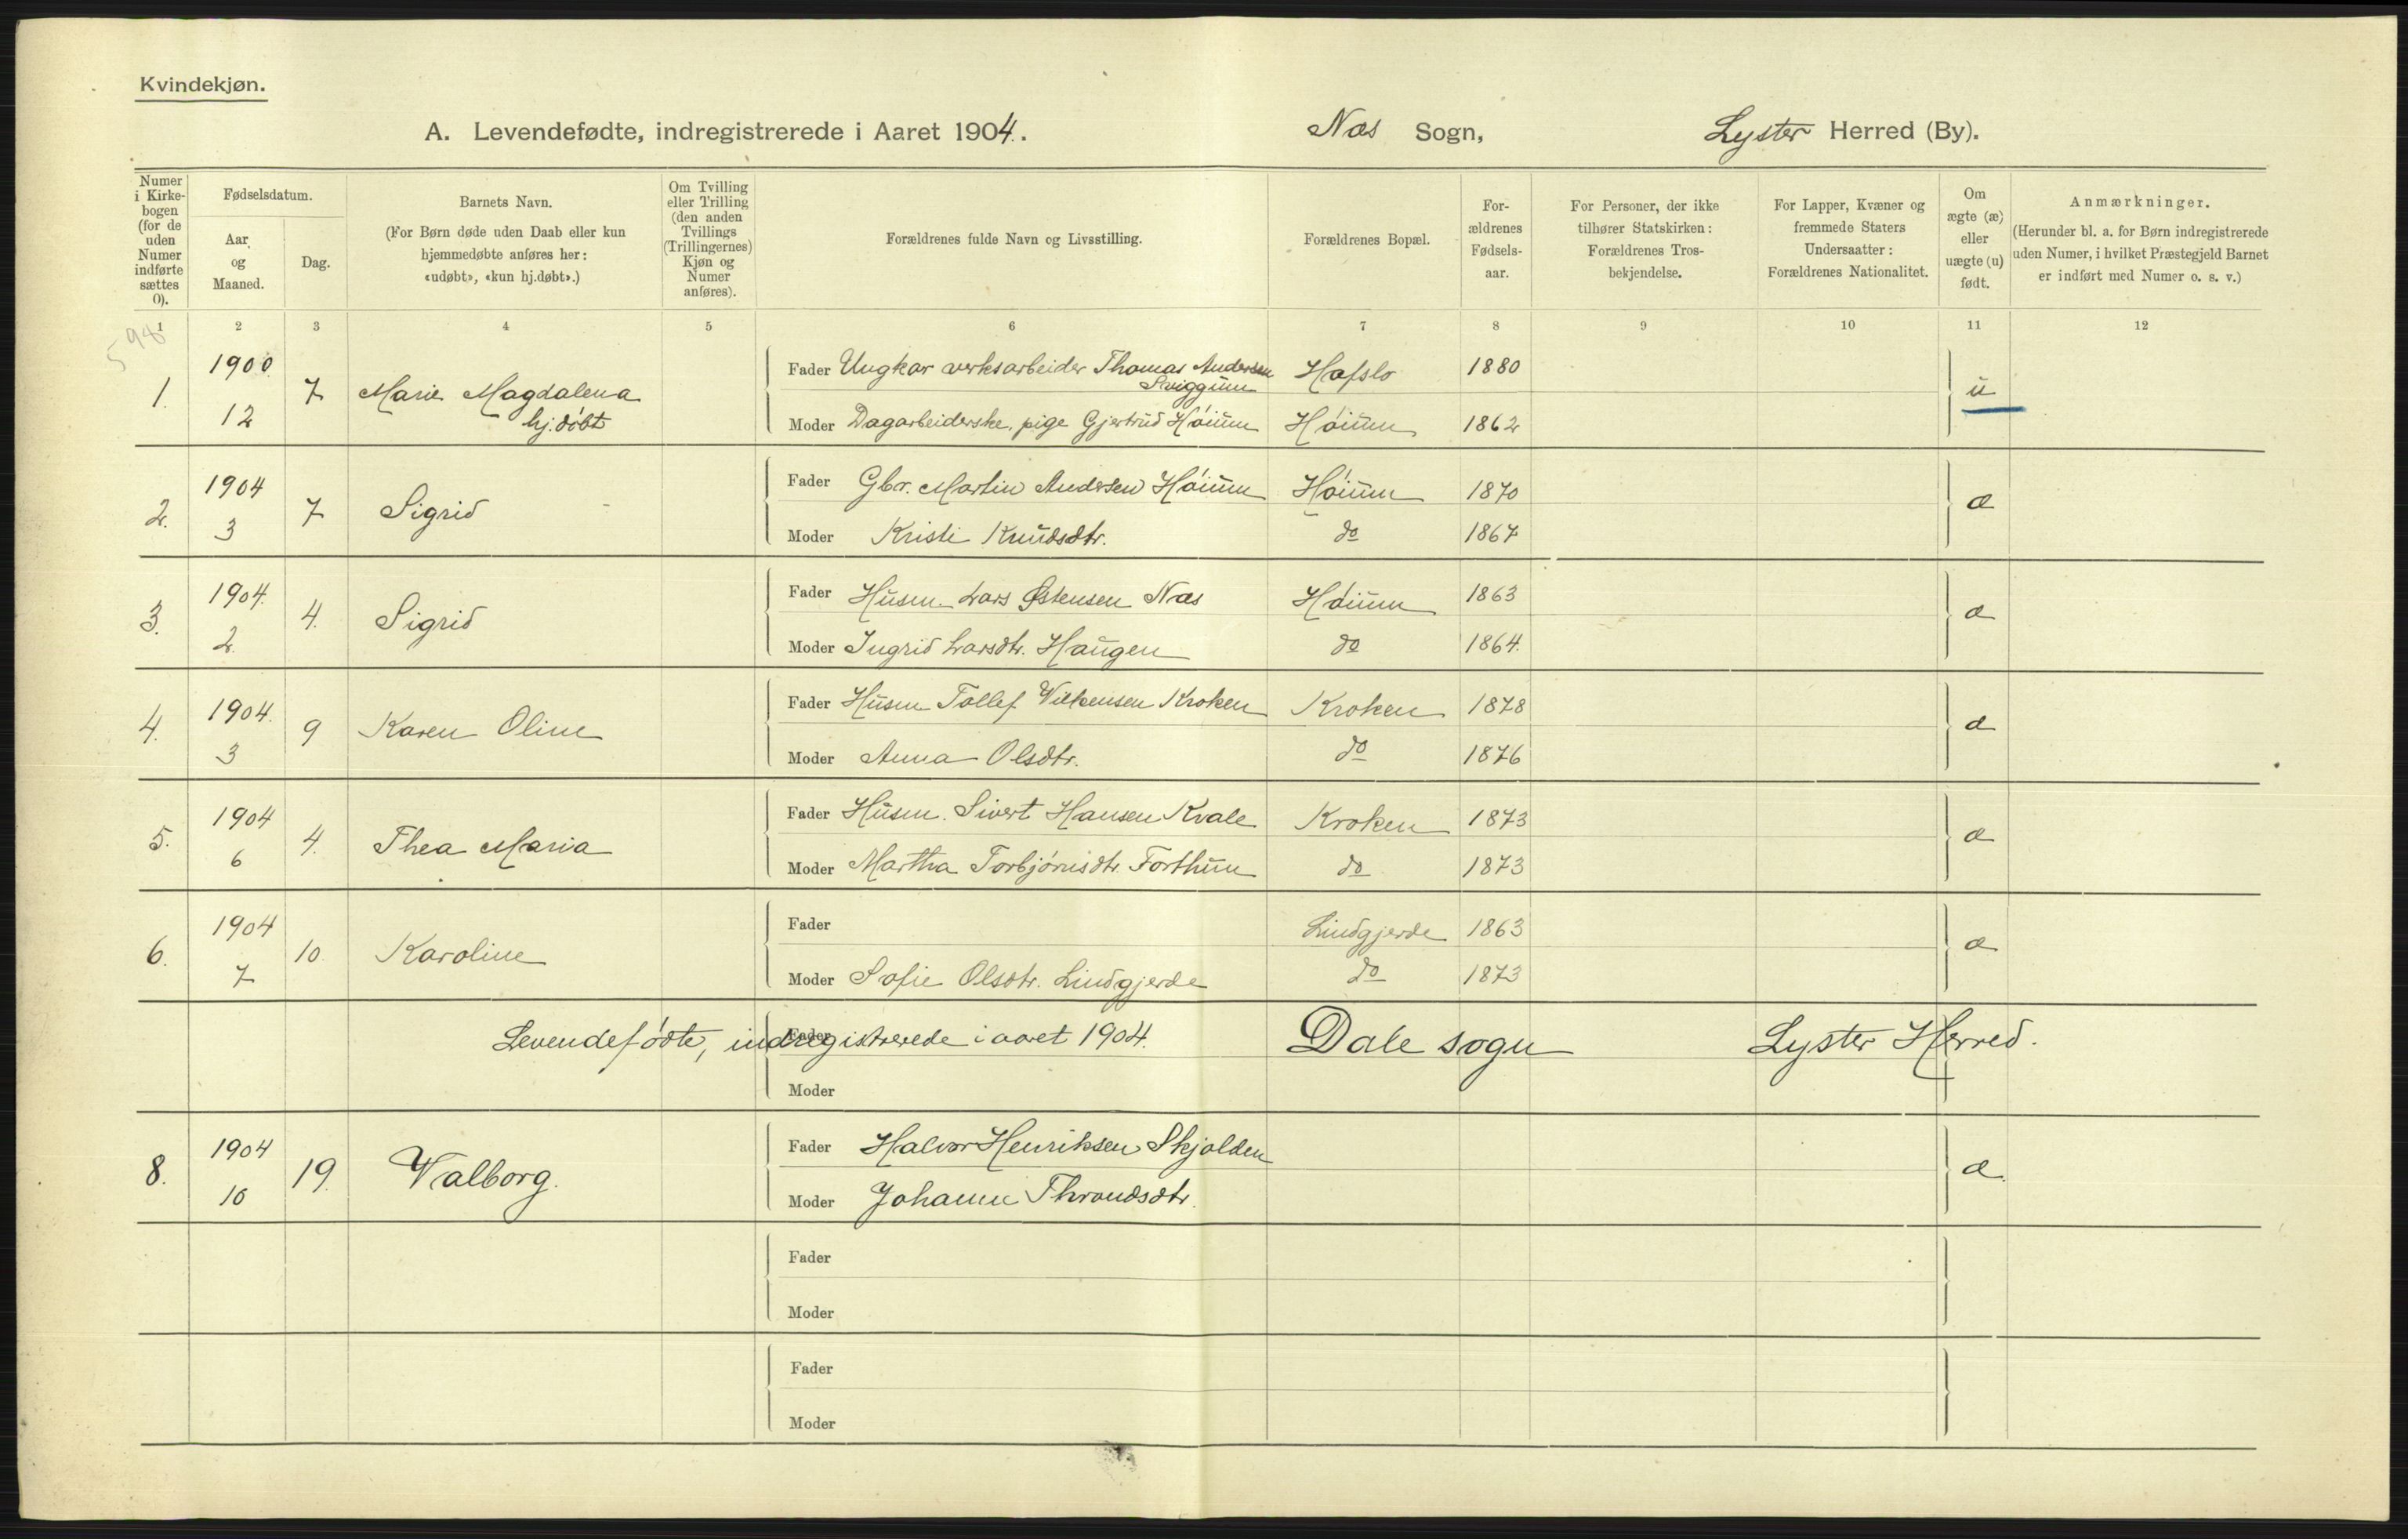 Kvindekjøn.
A. Levendefødte, indregistrerede i Aaret 1904. Næs Sogn, Lyster Herred (By).
Numer i Kirke-bogen (for de uden Numer indførte sættes 0).
Fødselsdatum.
Aar og Maaned.
Dag.
Barnets Navn.
(For Børn døde uden Daab eller kun
hjemmedøbte anføres her:
«udøbt», «kun hj.døbt».)
Om Tvilling
eller Trilling
(den anden
Tvillings
(Trillingernes)
Kjøn og
Numer
anføres).
Forældrenes fulde Navn og Livsstilling.
Forældrenes Bopæl.
For-
ældrenes
Fødsels-
aar.
For Personer, der ikke
tilhører Statskirken:
Forældrenes Tros-
bekjendelse.
For Lapper, Kvæner og
fremmede Staters
Undersaatter:
Forældrenes Nationalitet.
Om
ægte (æ)
eller
uægte (u)
født.
Anmærkninger.
(Herunder bl. a. for Børn indregistrerede
uden Numer, i hvilket Præstegjeld Barnet
er indført med Numer o. s. v.)
1 2 3 4 5 6 7 8 9 10 11 12
598
1. 1900 12 7 Marie Magdalena
hj.døbt
Fader Ungkar verksarbeider Thomas Andersen
Sviggum Hafslo 1880
Moder Dagarbeiderske, pige Gjertrud Høium Høium 1862
u
2. 1904 3 7 Sigrid
Fader Gbr. Martin Andersen Høium Høium 1870
Moder Kristi Knudsdtr. do 1867
æ
3. 1904. 2. 4. Sigrid
Fader Husm. Lars Østensen Næs Høium 1863
Moder Ingrid Larsdtr. Haugen do 1864.
æ
4. 1904. 3 9 Karen Oline
Fader Husm Tollef Wilhensen Kroken Kroken 1878
Moder Anna Olsdtr. do 1876
æ
5. 1904 6 4. Thea Maria
Fader Husm. Sivert Hansen Kvale Kroken 1873
Moder Martha Torbjørnsdtr. Forthun do 1873
æ
6. 1904 7 10 Karoline
Fader Lindgjerde 1863
Moder Sofie Olsdtr. Lindgjerde do 1873
æ
Levendefødte, indregistrerede i aaret 1904. Dale sogn Lyster Herred.
Fader
Moder
8. 1904 10 19. Valborg.
Fader Halvor Henriksen Skjolden
Moder Johanne Throndsdtr.
æ.
Fader
Moder
Fader
Moder